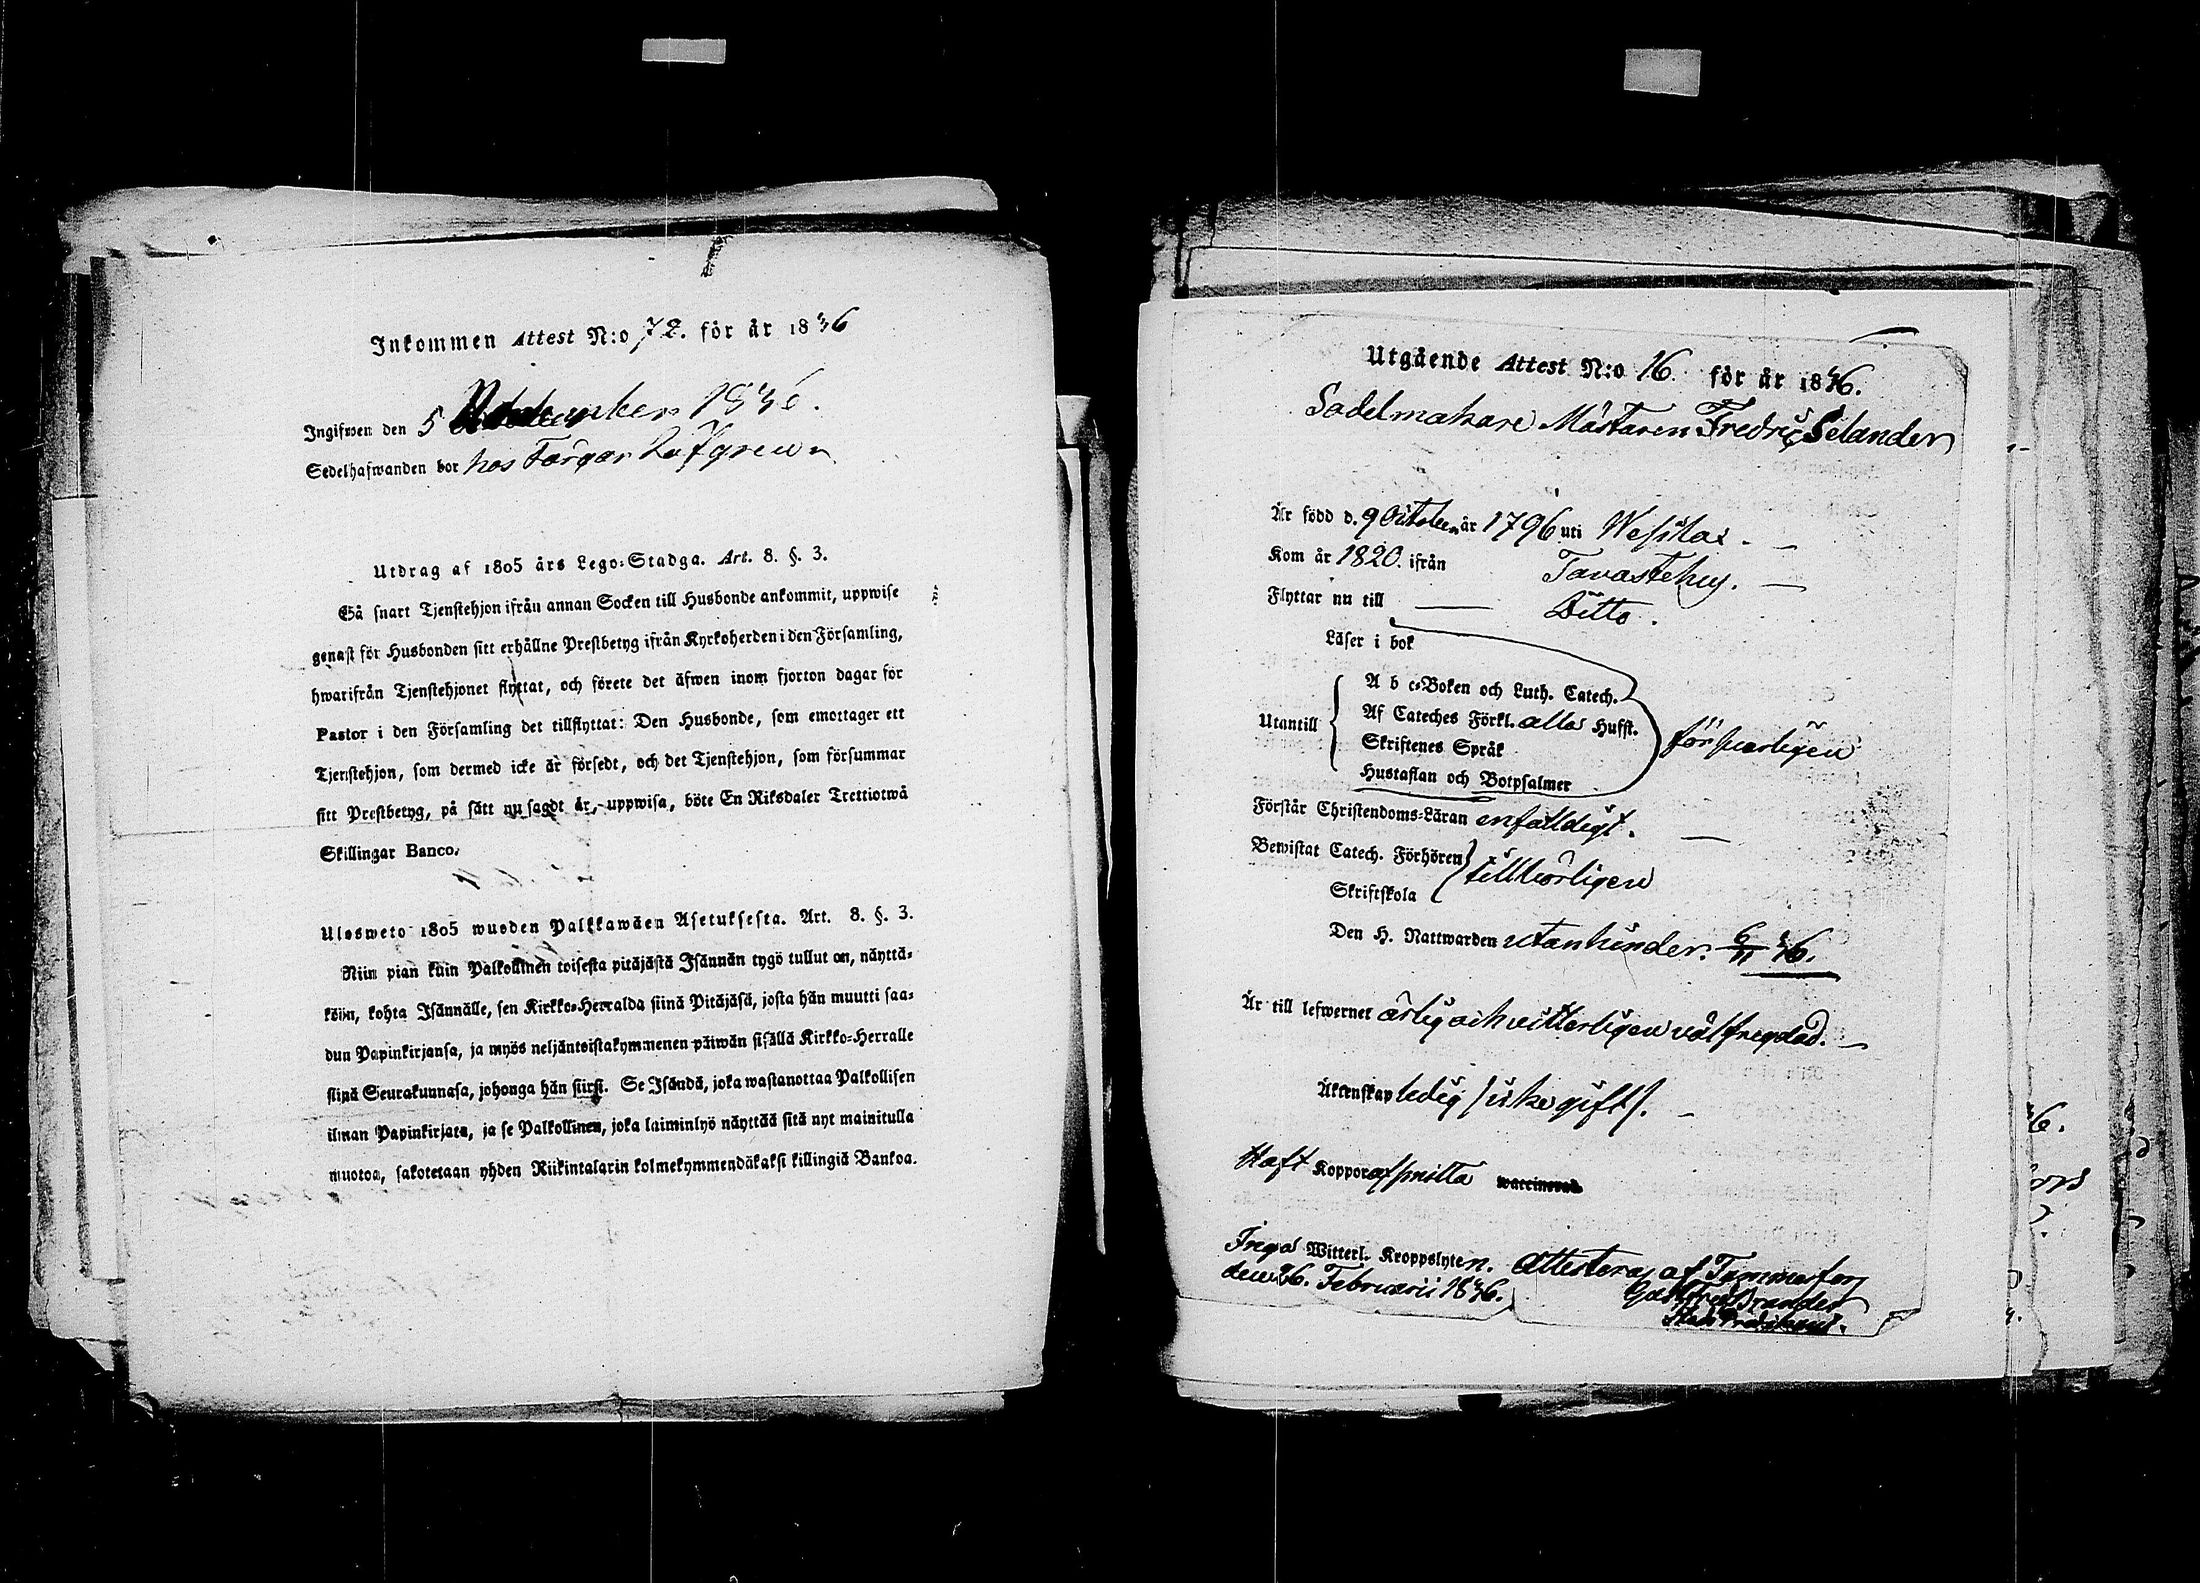 Inkommen Attest N:o 72. för år 1846
Ingifwen den 5 1846.
Sedelhafwanden bor hos Färgar Löfgren
Utdrag af 1805 års Lego-Stadga. Art. 8. §. 3.
Så snart Tjenstehjon ifrån annan Socken till Husbonde ankommit, uppwise
genast för Husbonden sitt erhållne Prestbetyg ifrån Kyrkoherden i den Församling,
hwarifrån Tjenstehjonet flyttat, och förete det äfwen inom fjorton dagar för
Pastor i den Församling det tillflyttat: Den Husbonde, som emottager ett
Tjenstehjon, som dermed icke är försedt, och det Tjenstehjon, som försummar
sitt Prestbetyg, på sätt nu sagdt är, uppwisa, böte En Riksdaler Trettiotwå
Skillingar Banco.
Ulosweto 1805 wuoden Palkkawäen Asetuksesta. Art. 8. §. 3.
Niin pian kuin Palkollinen toisesta pitäjästä Isännän tygö tullut on, näyttä-
köön, kohta Isännälle, sen Kirkko-Herralda siinä Pitäjäsä, josta hän muutti saa-
dun Papinkirjansa, ja myös neljäntoistakymmenen päiwän sisällä Kirkko-Herralle
siinä Seurakunnasa, johonga hän siirsi. Se Isändä, joka wastanottaa Palkollisen
ilman Papinkirjata, ja se Palkollinen, joka laiminlyö näyttää sitä nyt mainitulla
muotoa, sakotetaan yhden Riikintalarin kolmekymmendäkaksi killingiä Bankoa.
Utgående Attest N:o 16. för år 1846.
Sadelmakare Mästaren Fredric Selander
Är född d. 9 October år 1796 uti Wesilax. —
Kom år 1820. ifrån Tavastehus. —
Flyttar nu till — Ditto.
Läser i bok
A b c-Boken och Luth. Catech.
Utantill Af Cateches Förkl. alla Hufst. försvarligen
Skriftenes Språk
Hustaflan och Botpsalmer
Förstår Christendoms-Läran enfaldigt. —
Bewistat Catech. Förhören tillbörligen
Skriftskola
Den H. Nattwarden utan hinder. 46.
Är till lefwernet ärlig och vitterligen välfrägdad. —
Äktenskap ledig /icke gift/. —
Haft Koppor af smitta waccinerad
Inga Witterl. Kroppslyten. Attesteras af Tammerfors
den 26. Februarii 1846. Gustaf Brander